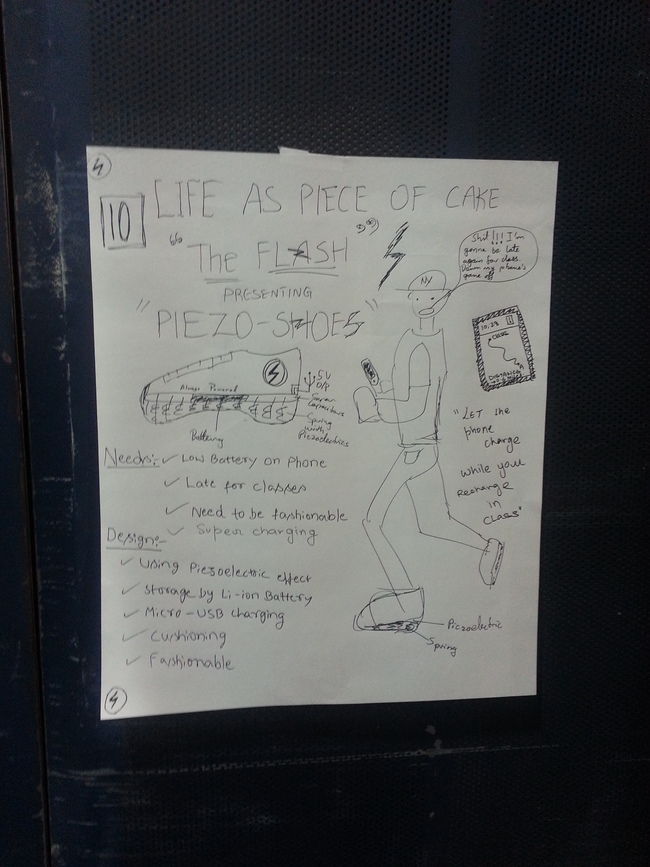 10
LIFE AS PIECE OF CAKE
"The FLASH"
PRESENTING
"PIEZO-SHOES"
Shit!!! I'm
gonna be late
again for class.
my phone's
gonna off
NY
10:28
CLASS
DISTANCE
Always Powered
5V
O/P
Super
Capacitor
Spring
with
Piezoelectrics
Battery
"LET the
phone
charge
while you
recharge
in
CLASS"
Needs:- ✓ Low Battery on Phone
✓ Late for classes
✓ Need to be fashionable
✓ Super charging
Design:-
✓ Using Piezoelectric effect
✓ Storage by Li-ion Battery
✓ Micro-USB charging
✓ Cushioning
✓ Fashionable
Piezoelectric
Spring